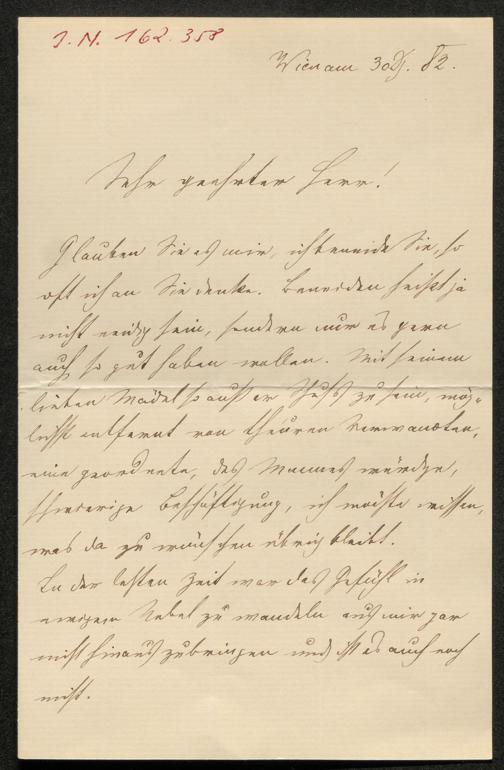 J. N. 162.358
Wien am 30/. 82.
Sehr geehrter Herr!
Glauben Sie es mir, ich beneide Sie, so
oft ich an Sie denke. Beneiden heißt ja
nicht neidig sein, sondern nur es gern
auch so gut haben wollen. Mit seinem
lieben Mädel so außer Schuß zu sein, mög-
lichst entfernt von theuren Verwandten,
eine geordnete, des Mannes würdige,
schwierige Beschäftigung, ich möchte wissen,
was da zu wünschen übrig bleibt.
In der letzten Zeit war das Gefühl in
ewigem Nebel zu wandeln aus mir gar
nicht hinauszubringen und ist es auch noch
nicht.